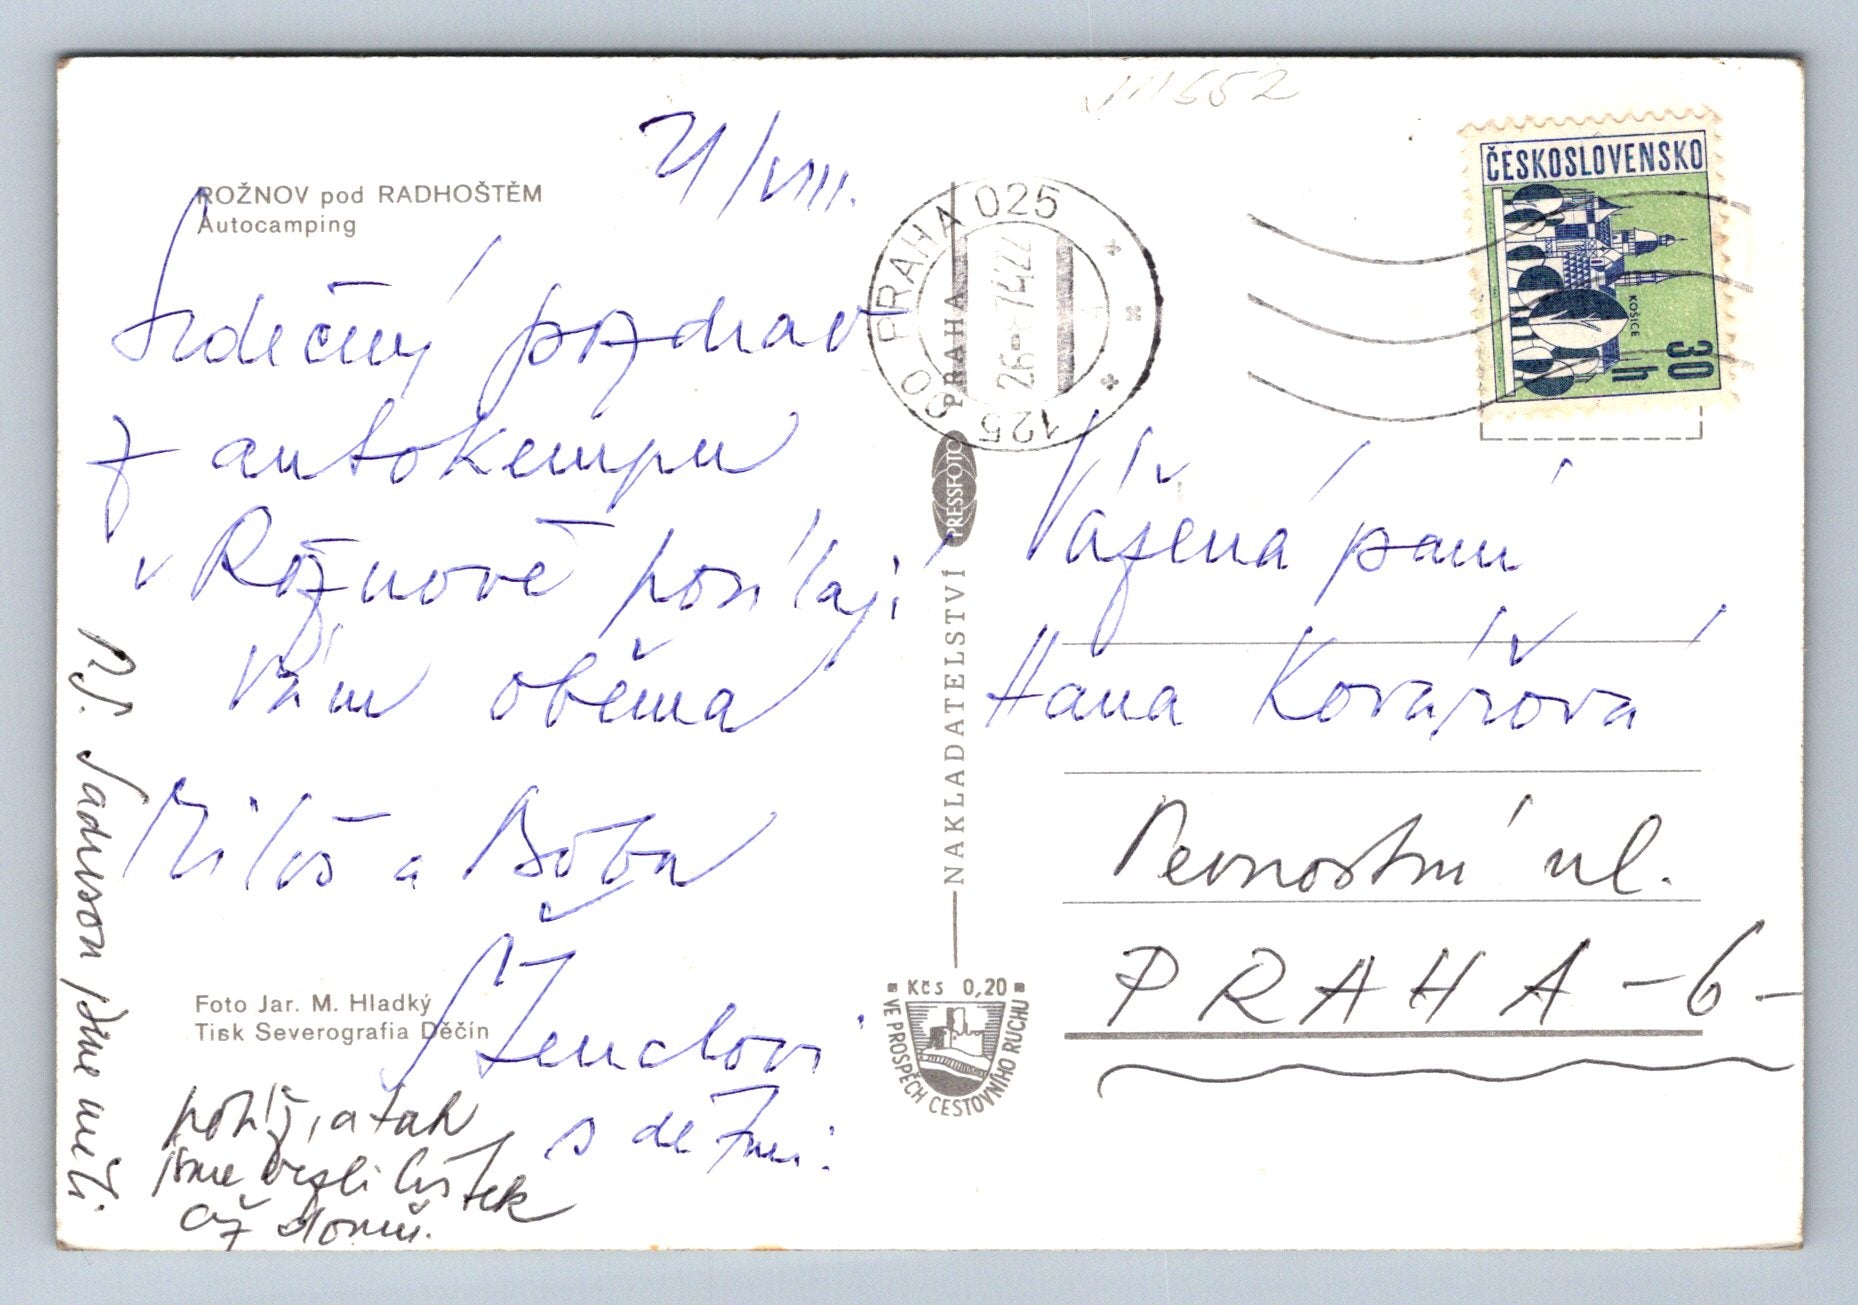 ROŽNOV pod RADHOŠTĚM
Autocamping
21/VIII.
Srdečný pozdrav
z autokempu
v Rožnově posílají
Vám oběma
Miloš a Boba
s dětmi.
P.S. Jsme měli
potíž, a tak
jsme vezli lístek
až domů.
Foto Jar. M. Hladký
Tisk Severografia Děčín
PRESSFOTO
NAKLADATELSTVÍ
PRAHA
Kčs 0,20
VE PROSPĚCH CESTOVNÍHO RUCHU
PRAHA 025
26.-8.74-22
125 00
ČESKOSLOVENSKO
KOŠICE
30 h
Vážená paní
Hana Kovářová
Pevnostní ul.
PRAHA -6-